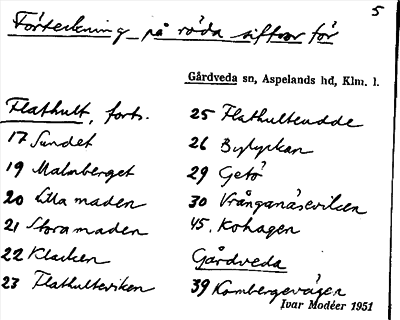 5
Förteckning på röda siffror för
Gårdveda sn, Aspelands hd, Klm. l.
Flathult, forts.
17 Sundet
19 Malmberget
20 Lilla maden
21 Stora maden
22 Klacken
23 Flathulteviken
25 Flathulteudde
26 Bylyckan
29 Getö
30 Vrånganäseviken
45. Kohagen
Gårdveda
39 Kornbergevägen
Ivar Modéer 1951